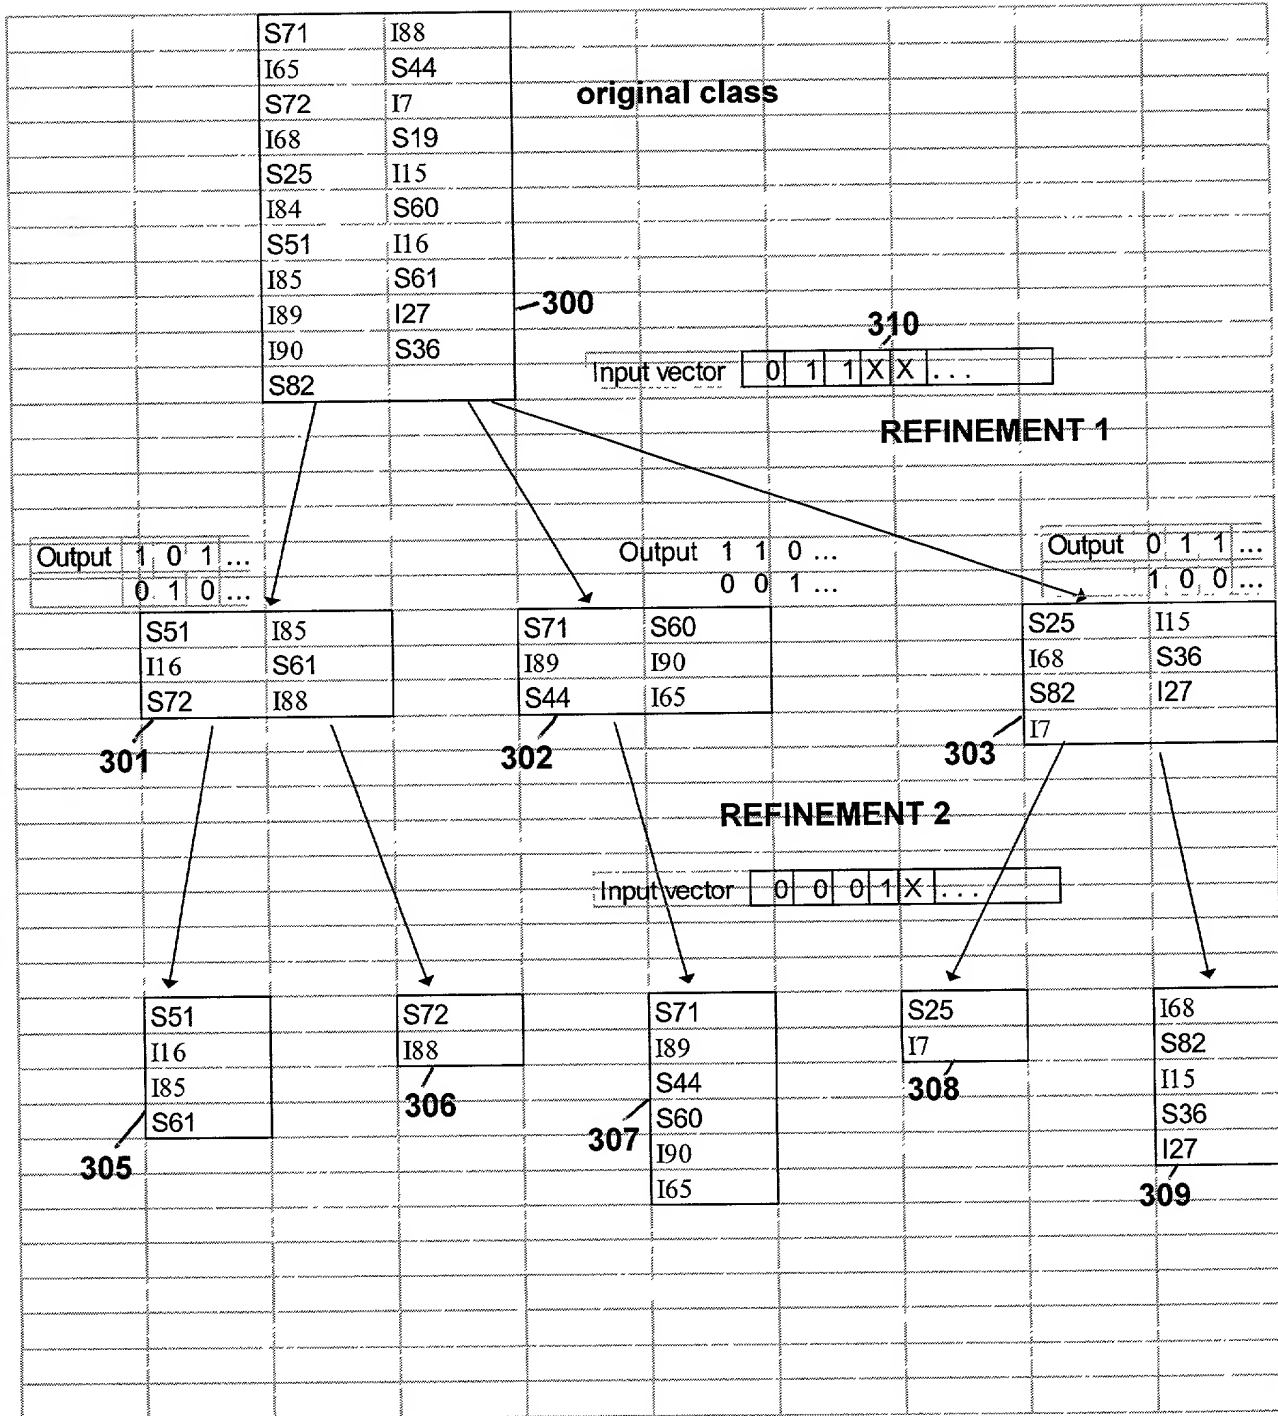 S71 I88
I65 S44
original class
S72 I7
I68 S19
S25 I15
I84 S60
S51 I16
I85 S61
300
I89 I27
310
I90 S36
Input vector 0 1 1 X X . . .
S82
REFINEMENT 1
Output 1 0 1 ...
0 1 0 ...
Output 1 1 0 ...
0 0 1 ...
Output 0 1 1 ...
1 0 0 ...
S51 I85
I16 S61
S72 I88
301
S71 S60
I89 I90
S44 I65
302
S25 I15
I68 S36
S82 I27
I7
303
REFINEMENT 2
Input vector 0 0 0 1 X . . .
S51
I16
I85
S61
305
S72
I88
306
S71
I89
S44
S60
I90
I65
307
S25
I7
308
I68
S82
I15
S36
I27
309